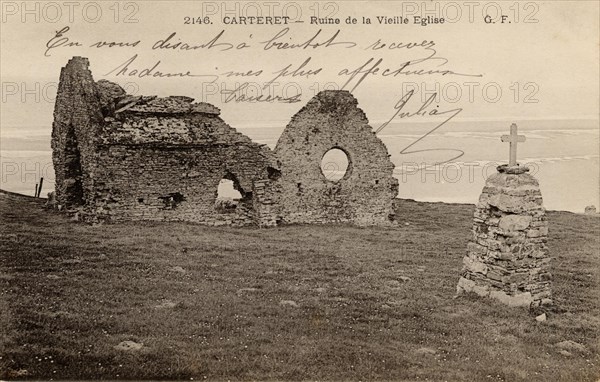 2146. CARTERET – Ruine de la Vieille Eglise G. F.
En vous disant à bientot recevez
Madame mes plus affectueux
baisers
Julia
PHOTO12